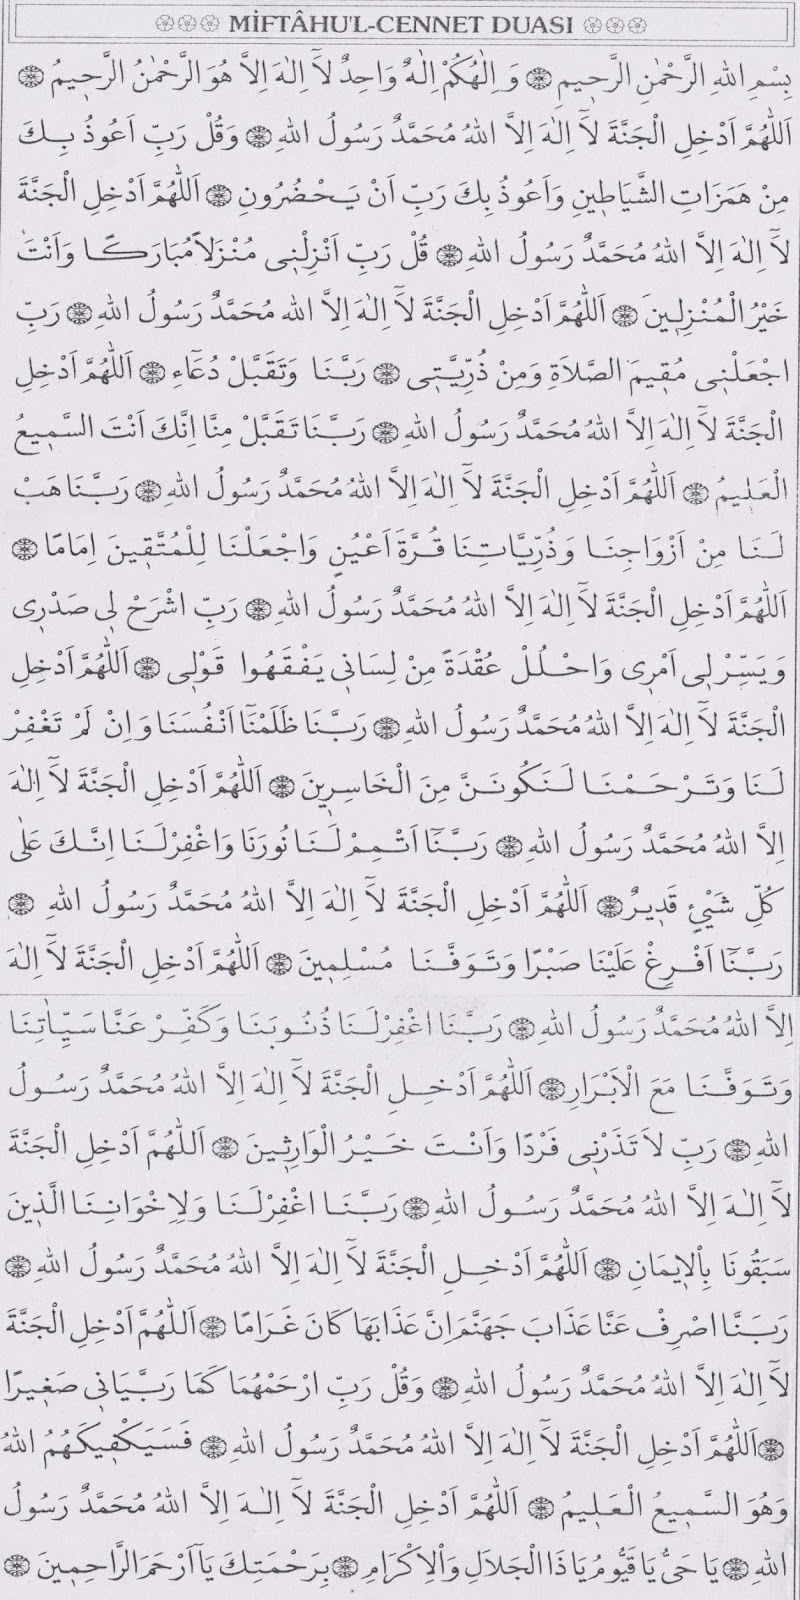 MİFTÂHU'L-CENNET DUASI
بِسْمِ اللهِ الرَّحْمٰنِ الرَّحٖيمِ ۞ وَ اِلٰهُكُمْ اِلٰهٌ وَاحِدٌ لَآ اِلٰهَ اِلَّا هُوَ الرَّحْمٰنُ الرَّحٖيمُ ۞
اَللّٰهُمَّ اَدْخِلِ الْجَنَّةَ لَآ اِلٰهَ اِلَّا اللهُ مُحَمَّدٌ رَسُولُ اللهِ ۞ وَقُلْ رَبِّ اَعُوذُ بِكَ
مِنْ هَمَزَاتِ الشَّيَاطٖينِ وَاَعُوذُ بِكَ رَبِّ اَنْ يَحْضُرُونِ ۞ اَللّٰهُمَّ اَدْخِلِ الْجَنَّةَ
لَآ اِلٰهَ اِلَّا اللهُ مُحَمَّدٌ رَسُولُ اللهِ ۞ قُلْ رَبِّ اَنْزِلْنٖى مُنْزَلاً مُبَارَكًا وَاَنْتَ
خَيْرُ الْمُنْزِلٖينَ ۞ اَللّٰهُمَّ اَدْخِلِ الْجَنَّةَ لَآ اِلٰهَ اِلَّا الله مُحَمَّدٌ رَسُولُ اللهِ ۞ رَبِّ
اجْعَلْنٖى مُقٖيمَ الصَّلَاةِ وَمِنْ ذُرِّيَّتٖى ۞ رَبَّنَا وَتَقَبَّلْ دُعَٓاءِ ۞ اَللّٰهُمَّ اَدْخِلِ
الْجَنَّةَ لَآ اِلٰهَ اِلَّا اللهُ مُحَمَّدٌ رَسُولُ اللهِ ۞ رَبَّنَا تَقَبَّلْ مِنَّا اِنَّكَ اَنْتَ السَّمٖيعُ
الْعَلٖيمُ ۞ اَللّٰهُمَّ اَدْخِلِ الْجَنَّةَ لَآ اِلٰهَ اِلَّا اللهُ مُحَمَّدٌ رَسُولُ اللهِ ۞ رَبَّنَا هَبْ
لَنَا مِنْ اَزْوَاجِنَا وَذُرِّيَّاتِنَا قُرَّةَ اَعْيُنٍ وَاجْعَلْنَا لِلْمُتَّقٖينَ اِمَامًا ۞
اَللّٰهُمَّ اَدْخِلِ الْجَنَّةَ لَآ اِلٰهَ اِلَّا اللهُ مُحَمَّدٌ رَسُولُ اللهِ ۞ رَبِّ اشْرَحْ لٖى صَدْرٖى
وَيَسِّرْ لٖى اَمْرٖى وَاحْلُلْ عُقْدَةً مِنْ لِسَانٖى يَفْقَهُوا قَوْلٖى ۞ اَللّٰهُمَّ اَدْخِلِ
الْجَنَّةَ لَآ اِلٰهَ اِلَّا اللهُ مُحَمَّدٌ رَسُولُ اللهِ ۞ رَبَّنَا ظَلَمْنَٓا اَنْفُسَنَا وَاِنْ لَمْ تَغْفِرْ
لَنَا وَتَرْحَمْنَا لَنَكُونَنَّ مِنَ الْخَاسِرٖينَ ۞ اَللّٰهُمَّ اَدْخِلِ الْجَنَّةَ لَآ اِلٰهَ
اِلَّا اللهُ مُحَمَّدٌ رَسُولُ اللهِ ۞ رَبَّنَٓا اَتْمِمْ لَنَا نُورَنَا وَاغْفِرْلَنَا اِنَّكَ عَلٰى
كُلِّ شَيْئٍ قَدٖيرٌ ۞ اَللّٰهُمَّ اَدْخِلِ الْجَنَّةَ لَآ اِلٰهَ اِلَّا اللهُ مُحَمَّدٌ رَسُولُ اللهِ ۞
رَبَّنَٓا اَفْرِغْ عَلَيْنَا صَبْرًا وَتَوَفَّنَا مُسْلِمٖينَ ۞ اَللّٰهُمَّ اَدْخِلِ الْجَنَّةَ لَآ اِلٰهَ
اِلَّا اللهُ مُحَمَّدٌ رَسُولُ اللهِ ۞ رَبَّنَا اغْفِرْلَنَا ذُنُوبَنَا وَكَفِّرْ عَنَّا سَيِّاٰتِنَا
وَتَوَفَّنَا مَعَ الْاَبْرَارِ ۞ اَللّٰهُمَّ اَدْخِلِ الْجَنَّةَ لَآ اِلٰهَ اِلَّا اللهُ مُحَمَّدٌ رَسُولُ
اللهِ ۞ رَبِّ لَا تَذَرْنٖى فَرْدًا وَاَنْتَ خَيْرُ الْوَارِثٖينَ ۞ اَللّٰهُمَّ اَدْخِلِ الْجَنَّةَ
لَآ اِلٰهَ اِلَّا اللهُ مُحَمَّدٌ رَسُولُ اللهِ ۞ رَبَّنَا اغْفِرْلَنَا وَلِاِخْوَانِنَا الَّذٖينَ
سَبَقُونَا بِالْاٖيمَانِ ۞ اَللّٰهُمَّ اَدْخِلِ الْجَنَّةَ لَآ اِلٰهَ اِلَّا اللهُ مُحَمَّدٌ رَسُولُ اللهِ ۞
رَبَنَّا اصْرِفْ عَنَّا عَذَابَ جَهَنَّمَ اِنَّ عَذَابَهَا كَانَ غَرَامًا ۞ اَللّٰهُمَّ اَدْخِلِ الْجَنَّةَ
لَآ اِلٰهَ اِلَّا اللهُ مُحَمَّدٌ رَسُولُ اللهِ ۞ وَقُلْ رَبِّ ارْحَمْهُمَا كَمَا رَبَّيَانٖى صَغٖيرًا
۞ اَللّٰهُمَّ اَدْخِلِ الْجَنَّةَ لَآ اِلٰهَ اِلَّا اللهُ مُحَمَّدٌ رَسُولُ اللهِ ۞ فَسَيَكْفٖيكَهُمُ اللهُ
وَهُوَ السَّمٖيعُ الْعَلٖيمُ ۞ اَللّٰهُمَّ اَدْخِلِ الْجَنَّةَ لَآ اِلٰهَ اِلَّا اللهُ مُحَمَّدٌ رَسُولُ
اللهِ ۞ يَا حَىُّ يَا قَيُّومُ يَا ذَا الْجَلَالِ وَالْاِكْرَامِ ۞ بِرَحْمَتِكَ يَآ اَرْحَمَ الرَّاحِمٖينَ ۞